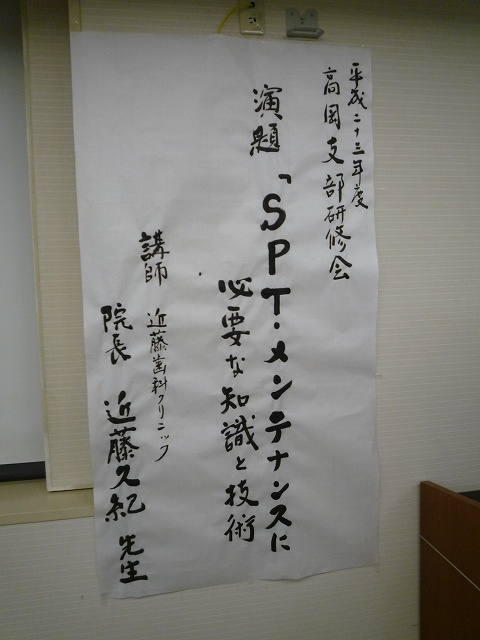 平成二十三年度
高岡支部研修会
演題 「SPT・メンテナンスに
必要な知識と技術
講師 近藤歯科クリニック
院長 近藤久紀 先生